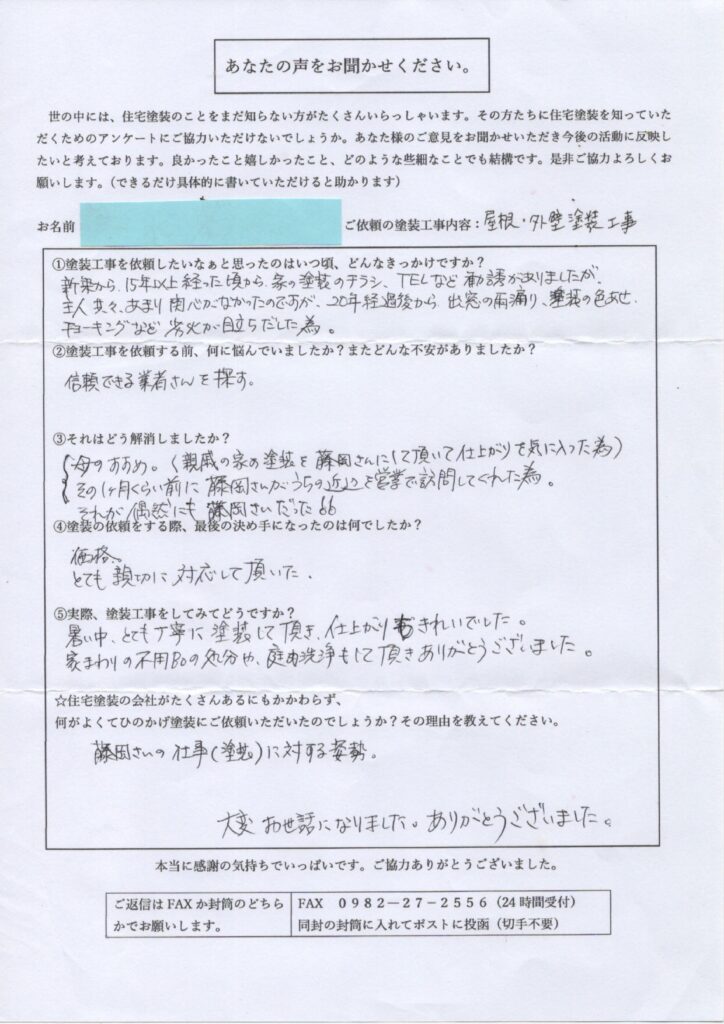 あなたの声をお聞かせください。
世の中には、住宅塗装のことをまだ知らない方がたくさんいらっしゃいます。その方たちに住宅塗装を知っていた
だくためのアンケートにご協力いただけないでしょうか。あなた様のご意見をお聞かせいただき今後の活動に反映し
たいと考えております。良かったこと嬉しかったこと、どのような些細なことでも結構です。是非ご協力よろしくお
願いします。（できるだけ具体的に書いていただけると助かります）
お名前 ご依頼の塗装工事内容：屋根・外壁塗装工事
①塗装工事を依頼したいなぁと思ったのはいつ頃、どんなきっかけですか？
新築から、15年以上経った頃から、家の塗装のチラシ、TELなど勧誘がありましたが、
主人共々、あまり関心がなかったのですが、20年経過後から出窓の雨漏り、塗装の色あせ、
チョーキングなど劣化が目立ちだした為。
②塗装工事を依頼する前、何に悩んでいましたか？またどんな不安がありましたか？
信頼できる業者さんを探す。
③それはどう解消しましたか？
母のすすめ。（親戚の家の塗装を藤岡さんにして頂いて仕上がりを気に入った為）
その1ヶ月くらい前に藤岡さんがうちの近辺を営業で訪問してくれた為。
それが偶然にも藤岡さんだった
④塗装の依頼をする際、最後の決め手になったのは何でしたか？
価格。
とても親切に対応して頂いた。
⑤実際、塗装工事をしてみてどうですか？
暑い中、とても丁寧に塗装して頂き、仕上がりもきれいでした。
家まわりの不用品の処分や、庭の洗浄もして頂きありがとうございました。
☆住宅塗装の会社がたくさんあるにもかかわらず、
何がよくてひのかげ塗装にご依頼いただいたのでしょうか？その理由を教えてください。
藤岡さんの仕事(塗装)に対する姿勢。
大変お世話になりました。ありがとうございました。
本当に感謝の気持ちでいっぱいです。ご協力ありがとうございました。
ご返信はFAXか封筒のどちら
かでお願いします。
FAX ０９８２－２７－２５５６（24時間受付）
同封の封筒に入れてポストに投函（切手不要）